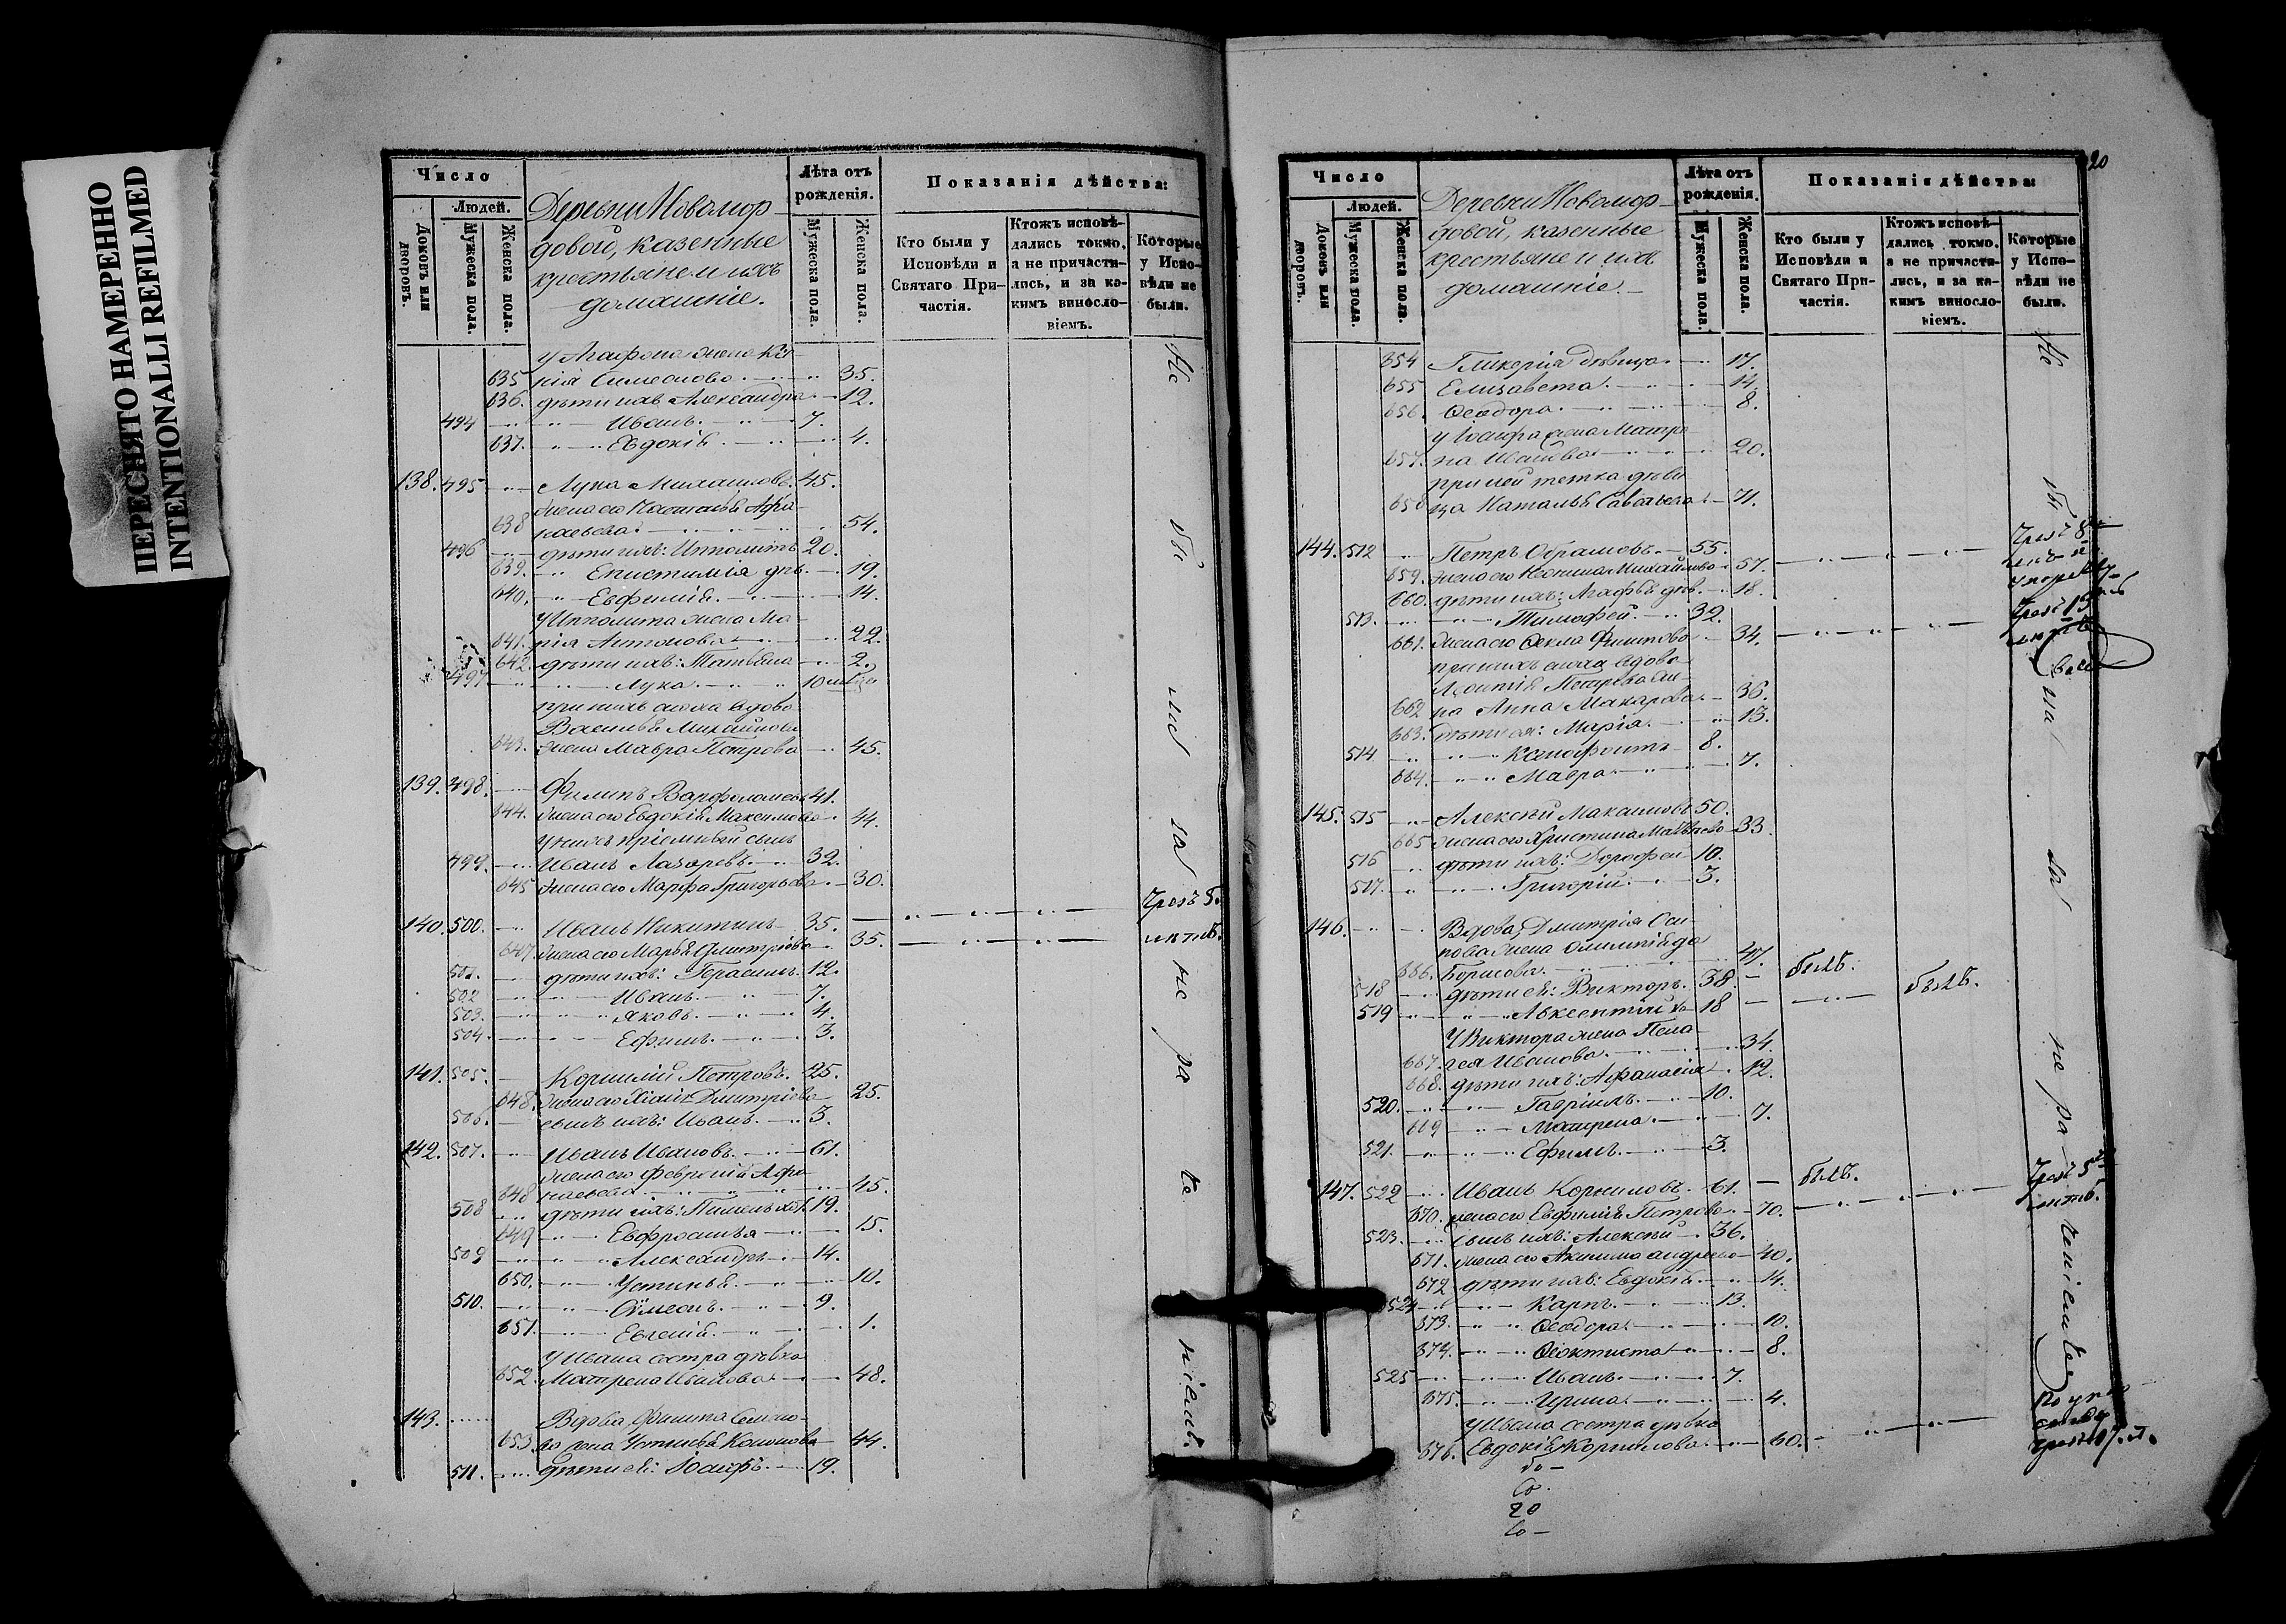 ПЕРЕСНЯТО НАМЕРЕННО
INTENTIONALLI REFILMED
Число
Людей.
Домовъ или дворовъ.
Мужеска пола.
Женска пола.
Деревни Новомор-
довой, казенные
крестьяне и ихъ
домашніе.
Лѣта отъ рожденія.
Мужеска пола.
Женска пола.
Показанія дѣйства:
Кто были у Исповѣди и Святаго При-частія.
Ктожъ исповѣ-дались токмо, а не причасти-лись, и за ка-кимъ виносло-віемъ.
Которые у Испо-вѣди не были.
у Агафона жена
635 Симеонова 35.
636. дѣти ихъ Александра 12.
494 Иванъ. 7.
637. Евдокія 4.
138. 495 Лука Михайловъ. 45.
жена его Наталья Афа-
638 насьева 54.
496 дѣти ихъ: Ипполитъ 20.
639. Епистимія дѣв. 19.
640. Евфимія. 14.
У Ипполита жена Ма-
641. рія Антонова 22.
642. дѣти ихъ: Татьяна 2.
497 Лука. 10
при нихъ сноха вдова
Василья Михайлова
643. жена Мавра Петрова 45.
139. 498. Филипъ Варфоломеевъ 41.
644. жена его Евдокія Максимова 44.
у нихъ пріемный сынъ
499. Иванъ Лазаревъ. 32.
645 жена его Марфа Григорьева 30.
140. 500. Иванъ Никитинъ 35. Чрезъ 5.
647. жена его Марья Дмитріева 35. лѣтіе.
501. дѣти ихъ: Герасимъ. 12.
502 Иванъ. 7.
503. Яковъ. 4.
504. Ефимъ. 3.
141. 505. Корнилій Петровъ. 25.
648. жена его Дмитріева 25.
506. сынъ ихъ: Иванъ. 3.
142. 507. Иванъ Ивановъ. 61.
жена его Февронія Афа-
648 насьева 45.
508 дѣти ихъ: Пименъ хол. 19.
649 Евфросинья 15.
509 Александръ 14.
650. Устинья. 10.
510. Сѷмеонъ. 9.
651. Евгенія. 1.
У Ивана сестра дѣвка
652. Матрена Иванова 48.
143. Вдова, Филипа Семено-
653. ва жена Устинья Кононова 44.
511. дѣти ея: Іосифъ. 19.
Не бы ли за не ра де ніемъ.
20
Число
Людей.
Домовъ или дворовъ.
Мужеска пола.
Женска пола.
Деревни Новомор-
довой, казенные
крестьяне и ихъ
домашніе.
Лѣта отъ рожденія.
Мужеска пола.
Женска пола.
Показанія дѣйства:
Кто были у Исповѣди и Святаго При-частія.
Ктожъ исповѣ-дались токмо, а не причасти-лись, и за ка-кимъ виносло-віемъ.
Которые у Испо-вѣди не были.
654 Гликерія дѣвица 17.
655 Елизавета 14.
656. Ѳеодора. 8.
у Іосифа жена Матре-
657. на Иванова 20.
при ней тетка дѣви-
658 ца Наталья Савельева 71.
144. 512 Петръ Абрамовъ. 55. Чрезъ 8
659. жена его Михайлова 57.
660. дѣти ихъ: Агафья дѣв. 18.
513. Тимофей. 32. Чрезъ 13
661. жена его Ѳекла Филипова 34.
при нихъ сноха вдова
Леонтія Петрова же-
662 на Анна Макарова 36.
663. дѣти ея: Марія 13.
514 Ксенофонтъ 8.
664. Мавра 7.
145. 515 Алексѣй Максимовъ 50.
665 жена его Христина Матвѣева 33.
516 дѣти ихъ: Дорофей 10.
517. Григорій 3.
146. Вдова, Дмитрія Оси-
пова жена Олимпіада
666. Борисова. 47.
518 дѣти ея: Викторъ. 38. былъ.
519 Авксентій хо 18 былъ.
У Виктора жена Пела-
667. гея Иванова 34.
668. дѣти ихъ: Афанасія 12.
520. Гавріилъ. 10.
669 Матрена. 7.
521. Ефимъ. 3.
147. 522 Иванъ Корниловъ. 61. былъ.
670. жена его Евфимія Петрова 70. Чрезъ 5 лѣтіе.
523. сынъ ихъ: Алексѣй 36.
671. жена его Акилина Андреева 40.
672 дѣти ихъ: Евдокія 14.
524 Карпъ. 13.
673. Ѳеодора 10.
674. Ѳеоктиста 8.
525 Иванъ. 7.
675. Ирина 4.
У Ивана сестра дѣвка
676. Евдокія Корнилова 60.
Не бы ли за не ра деніемъ
20